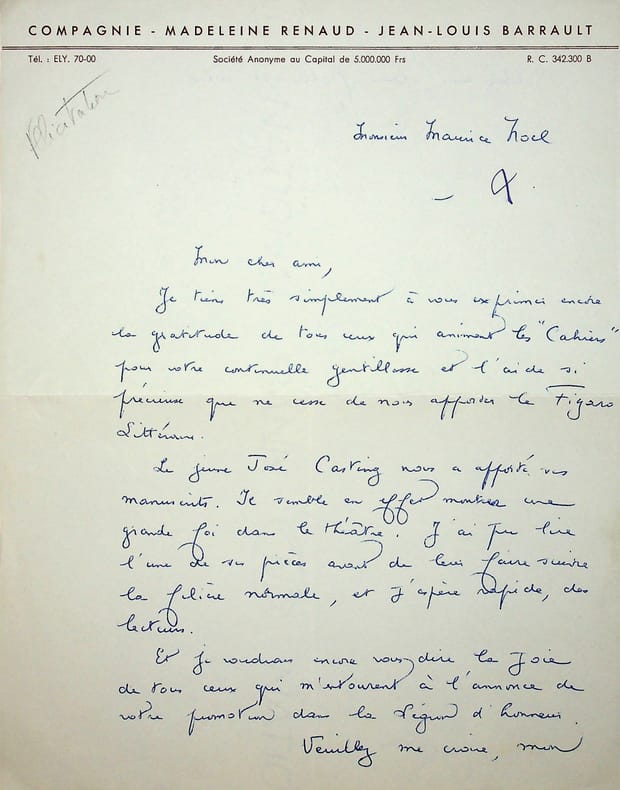 COMPAGNIE - MADELEINE RENAUD - JEAN-LOUIS BARRAULT
Tél. : ELY. 70-00 Société Anonyme au Capital de 5.000.000 Frs R. C. 342.300 B
Monsieur Maurice Noel
Mon cher ami,
Je tiens très simplement à vous exprimer encore
la gratitude de tous ceux qui animent les "Cahiers"
pour votre continuelle gentillesse et l'aide si
précieuse que ne cesse de nous apporter le Figaro
Littéraire.
Le jeune José Casting nous a apporté ses
manuscrits. Il semble en effet montrer une
grande foi dans le théâtre. J'ai pu lire
l'une de ses pièces avant de leur faire suivre
la filière normale, et j'espère rapide, des
lecteurs.
Et je voudrais encore vous dire la joie
de tous ceux qui m'entourent à l'annonce de
votre promotion dans la Légion d'honneur.
Veuillez me croire, mon